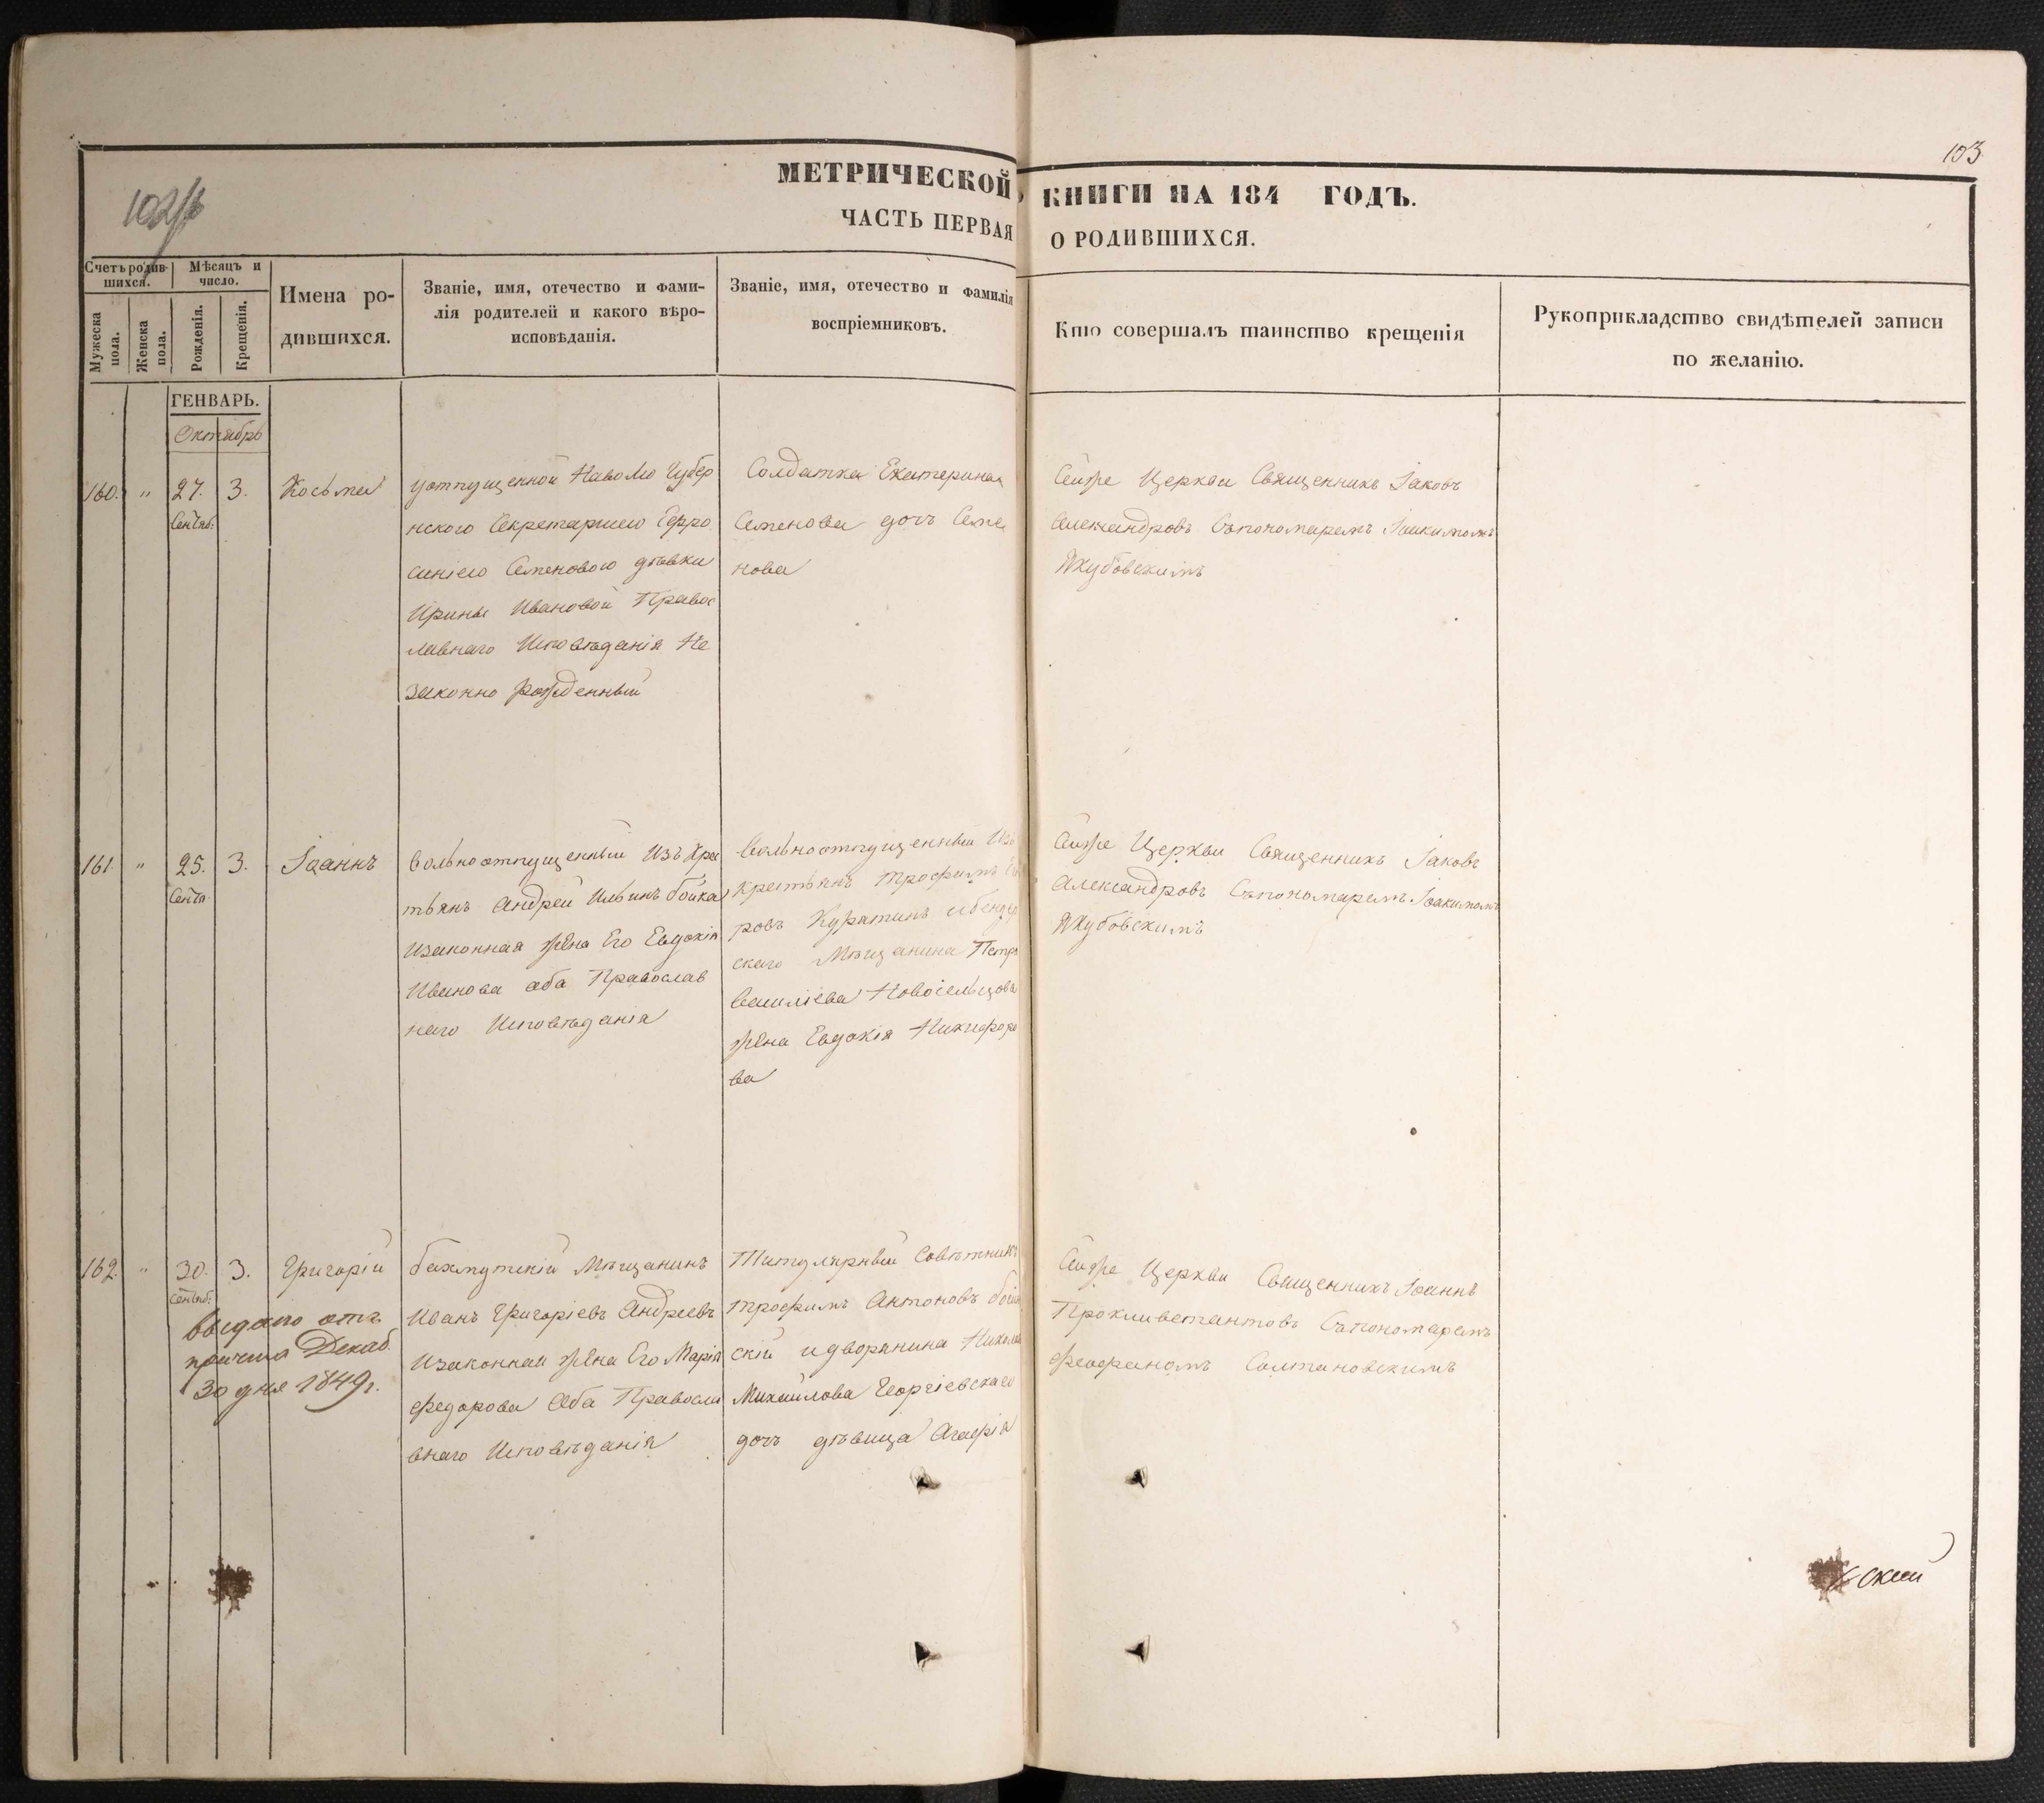 103
102/б
МЕТРИЧЕСКОЙ КНИГИ НА 184 ГОДЪ.
ЧАСТЬ ПЕРВАЯ О РОДИВШИХСЯ.
Счетъ родив-
шихся.
Мѣсяцъ и
число.
Мужеска
пола.
Женска
пола.
Рожденія.
Крещенія.
Имена ро-
дившихся.
Званіе, имя, отечество и фами-
лія родителей и какого вѣро-
исповѣданія.
Званіе, имя, отечество и фамилія
воспріемниковъ.
Кто совершалъ таинство крещенія
Рукоприкладство свидѣтелей записи
по желанію.
ГЕНВАРЬ.
Октябрь
160. " 27. 3. Косьма
Сентяб:
уотпущенной Наволю Губер
нского Секретаршею
Семеновою дѣвки
Ирины Ивановой Правос
лавнаго Исповѣданія Не
законно рожденный
Солдатка Екатерина
Семенова дочь Семе
нова
Сейже Церкви Священникъ Іаковъ
Александровъ Съпономаремъ Іоакимомъ
Якубовскимъ
161. " 25. 3. Іоаннъ
Сентя
Вольноотпущенный Изъ Крес
тьянъ Андрей Ильинъ Бойка
Изаконная жена Его Евдокія
Иванова оба Православ
наго Исповѣданія
Вольноотпущенный Изъ
Крестьянъ Трофимъ
ровъ Куратинъ ибендер
скаго Мѣщанина Петра
Василіева Новосельцова
жена Евдокія Никифоро
ва
Сейже Церкви Священникъ Іаковъ
Александровъ Съпономаремъ Іоакимомъ
Якубовскимъ
162. " 30. 3. Григорій
Сентяб:
выдано отъ
причта Декаб.
30 дня 1849 г.
Бахмутскій Мѣщанинъ
Иванъ Григоріевъ Андреевъ
Изаконная жена Его Марія
Федорова Оба Правосла
внаго Исповѣданія
Титулярный Совѣтникъ
Трофимъ Антоновъ
скій идворянина Никола
Михайлова Георгіевскаго
дочь дѣвица Агафія
Сейже Церкви Священникъ Іоаннъ
Съпономаремъ
Феофаномъ Солтановскимъ
ский